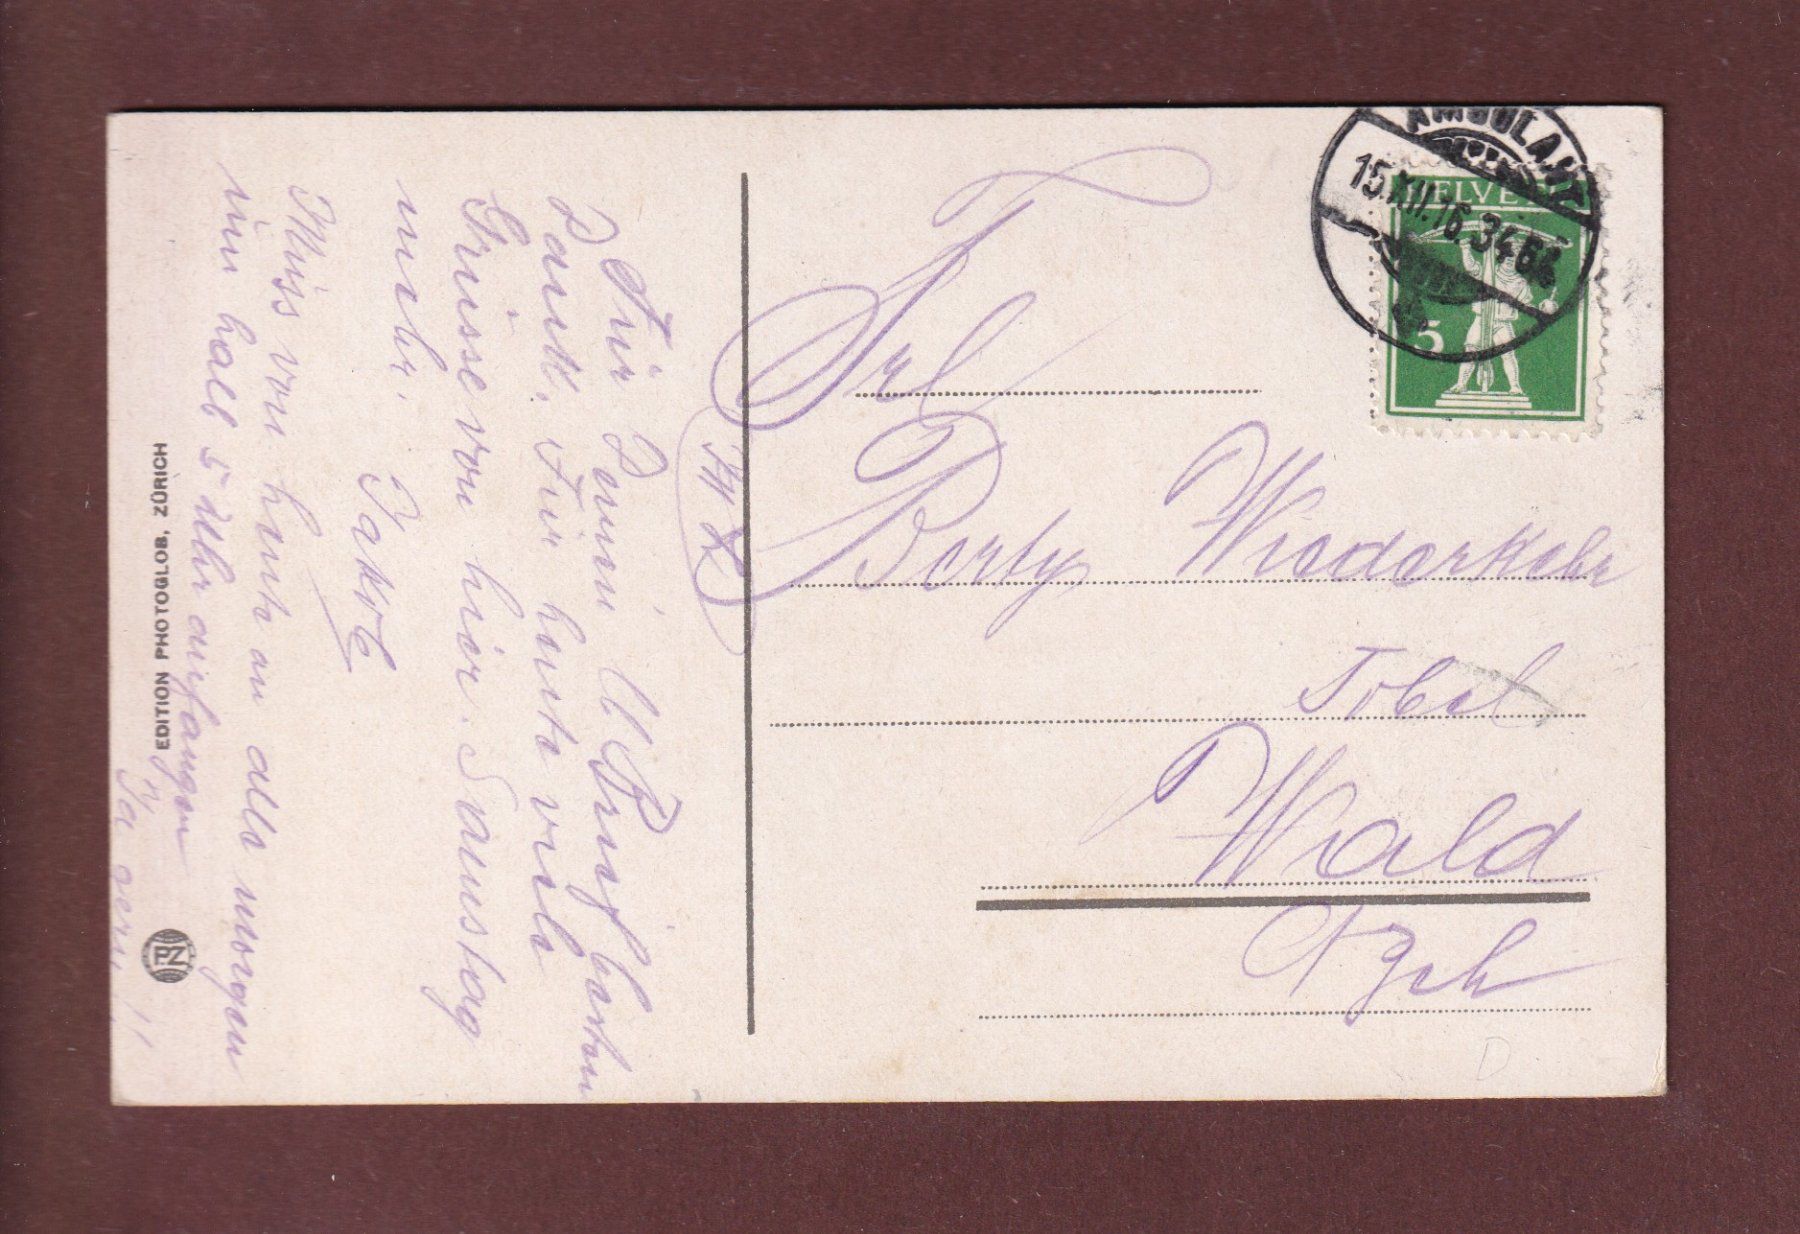 Für Deinen Brief besten
Dank. Für heute viele
Grüsse von hier. Samstag
mehr.
Jakob
Muss von heute an alle morgen
um halb 5 Uhr anfangen
Ja gern !!
EDITION PHOTOGLOB, ZÜRICH
PZ
Frl
Berty Wiederkehr
Tobel
Wald
AMBULANT
15.XII.16.
HELVETIA
5
D